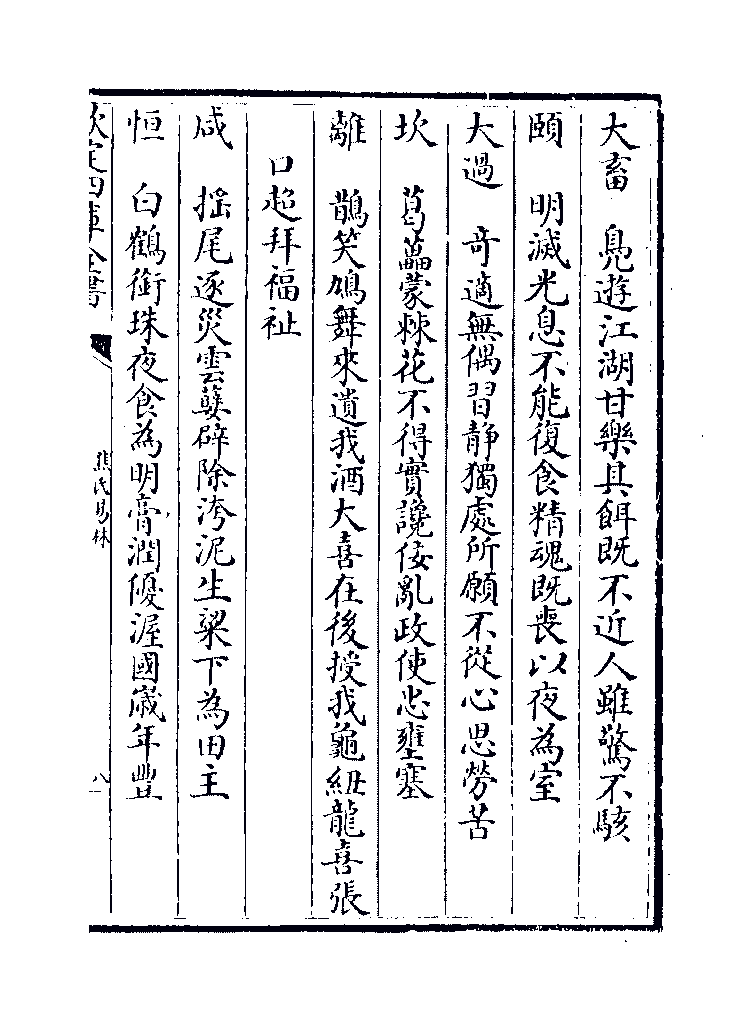 大畜　鳧遊江湖甘樂其餌既不近人雖驚不駭
頤　明滅光息不能復食精魂既喪以夜為室
大過　奇適無偶習静獨處所願不從心思勞苦
坎　葛藟蒙棘花不得實讒佞亂政使忠壅塞
離　鵲笑鳩舞來遺我酒大喜在後授我龜紐龍喜張
口起拜福祉
咸　揺尾逐災雲孽辟除洿泥生梁下為田主
恒　白鶴銜珠夜食為明膏潤優渥國嵗年豐
欽定四庫全書
焦氏易林
八